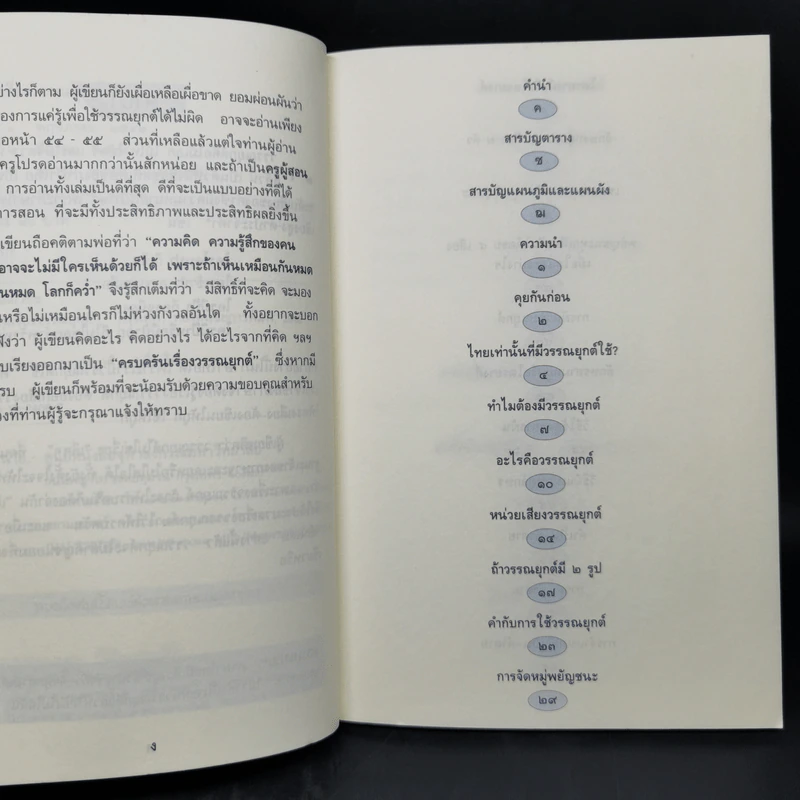 ย่างไรก็ตาม ผู้เขียนก็ยังเผื่อเหลือเผื่อขาด ยอมผ่อนผันว่า
องการแค่รู้เพื่อใช้วรรณยุกต์ได้ไม่ผิด อาจจะอ่านเพียง
อหน้า ๕๔ - ๕๕ ส่วนที่เหลือแล้วแต่ใจท่านผู้อ่าน
ครูโปรดอ่านมากกว่านั้นสักหน่อย และถ้าเป็นครูผู้สอน
การอ่านทั้งเล่มเป็นดีที่สุด ดีที่จะเป็นแบบอย่างที่ดีได้
ารสอน ที่จะมีทั้งประสิทธิภาพและประสิทธิผลยิ่งขึ้น
เขียนถือคติตามพ่อที่ว่า “ความคิด ความรู้สึกของคน
อาจจะไม่มีใครเห็นด้วยก็ได้ เพราะถ้าเห็นเหมือนกันหมด
นหมด โลกก็คว่ำ” จึงรู้สึกเต็มที่ว่า มีสิทธิ์ที่จะคิด จะมอง
นหรือไม่เหมือนใครก็ไม่ห่วงกังวลอันใด ทั้งอยากจะบอก
ฟังว่า ผู้เขียนคิดอะไร คิดอย่างไร ได้อะไรจากที่คิด ฯลฯ
บเรียงออกมาเป็น “ครบครันเรื่องวรรณยุกต์” ซึ่งหากมี
รบ ผู้เขียนก็พร้อมที่จะน้อมรับด้วยความขอบคุณสำหรับ
องที่ท่านผู้รู้จะกรุณาแจ้งให้ทราบ
ง
คำนำ
ค
สารบัญตาราง
ซ
สารบัญแผนภูมิและแผนผัง
ฌ
ความนำ
๑
คุยกันก่อน
๒
ไทยเท่านั้นที่มีวรรณยุกต์ใช้?
๔
ทำไมต้องมีวรรณยุกต์
๗
อะไรคือวรรณยุกต์
๑๐
หน่วยเสียงวรรณยุกต์
๑๔
ถ้าวรรณยุกต์มี ๒ รูป
๑๗
คำกับการใช้วรรณยุกต์
๒๓
การจัดหมู่พยัญชนะ
๒๙